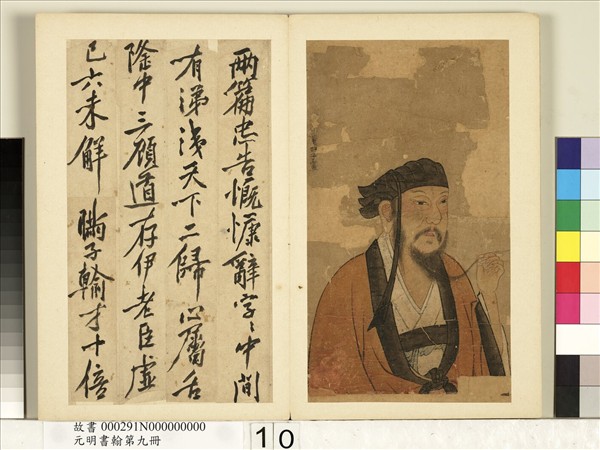 兩篇忠告慨慷辭字〻中間
有涕洟天下二歸心屬
隆中三顧道存伊老臣虛
已六未解 瞞子輸才十倍
故書 000291N000000000
元明書翰第九冊
10